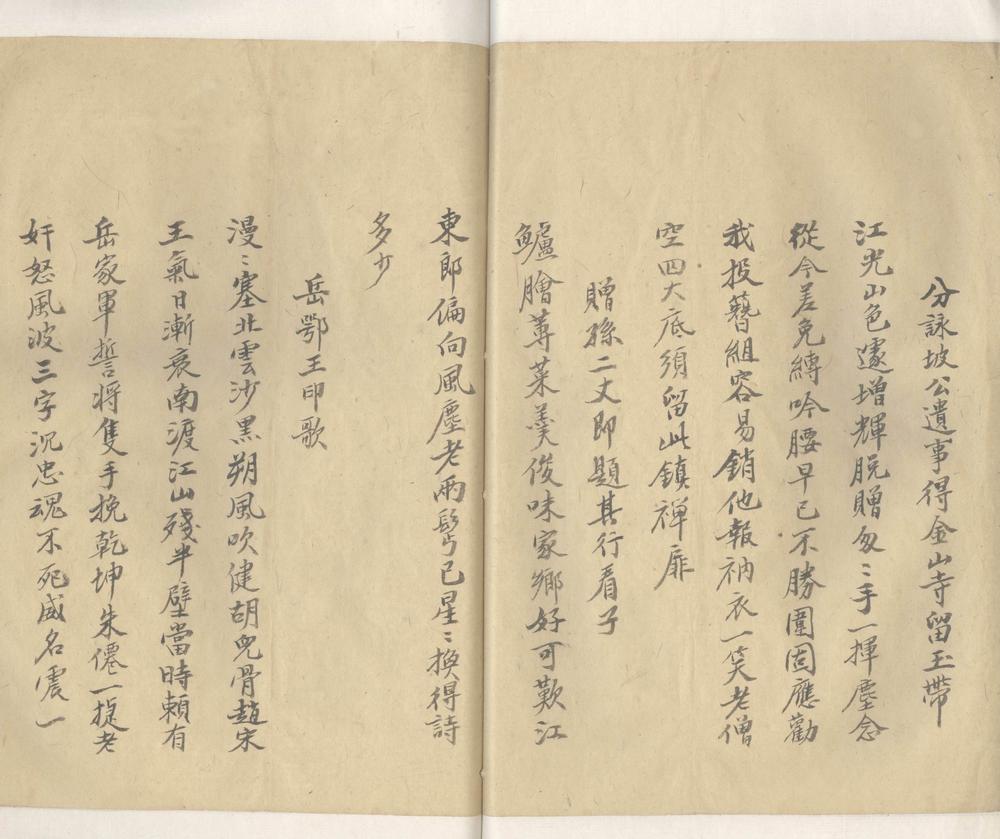 分詠坡公遺事得金山寺留玉帶
江光山色邃增輝脱贈匆〻手一揮塵念
從今差免縛吟腰早已不勝圍固應勸
我投簪組容易銷他報衲衣一笑老僧
空四大底須留此鎮禅扉
贈孫二丈即題其行看子
鱸膾蓴菜羹俊味家鄉好可歎江
東郎偏向風塵老兩鬢已星〻換得詩
多少
岳鄂王印歌
漫〻塞北雲沙黑朔風吹健胡兒骨趙宋
王氣日漸衰南渡江山殘半壁當時賴有
岳家軍誓將隻手挽乾坤朱僊一捷老
奸怒風波三字沉忠魂不死威名震一